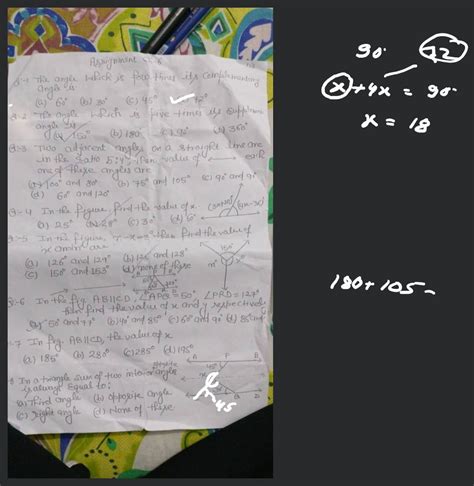 Assignment
Q-1 The angle which is four times its complementary
angle is
(a) 60° (b) 30° (c) 45° 72°
Q-2 The angle which is five times its supplement
angle is
(a) 150° (b) 180° (c) 90° (d) 360°
Q-3 Two adjacent angles on a straight line are
in the ratio 5:4, then value of each
one of these angles are
(a) 100° and 80° (b) 75° and 105° (c) 90° and 90°
(d) 60° and 120°
Q-4 In the figure, find the value of x
(a) 25° (b) 28° (c) 30° (d)
Q-5 In the figure, find the value of
(a) 126° and 129° (b) and 128°
(c) 150° and 153° (d) none of these
Q-6 In the fig, AB||CD, ∠APQ = 50° ∠PRD = 127°
find the value of x and y respectively
50° and (b) 40° and (c) 60° and 90° (d)
7 In fig. AB||CD, the value of x
(a) 185° (b) 280° (c) 285° (d) 195°
In a triangle sum of two interior angle
is always equal to:
(a) Third angle (b) opposite angle
(c) Right angle (d) None of these
A P B
45°
45
90° 72
x+4x = 90°
x = 18
180+105-